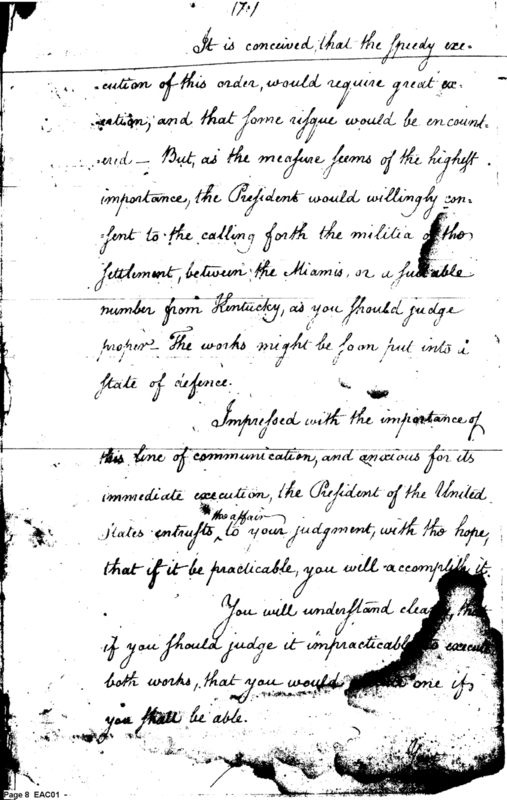 It is conceived that the speedy exe-
-cution of this order, would require great ex-
-ertion, and that some risque would be encount-
-ered - But, as the measure seems of the highest
importance, the President would willingly con-
-sent to the calling forth the militia of the
settlement, between the Miamis, or a suitable
number from Kentucky, as you should judge
proper - The works might be soon put into a
state of defence.
Impressed with the importance of
this line of communication, and anxious for its
immediate execution, the President of the United
the affair
States entrusts to your judgment, with the hope,
that if it be practicable, you will accomplish it.
You will understand clearly, that
if you should judge it impracticable to execute
both works, that you would one if
you shall be able.
Page 8 EAC01 -